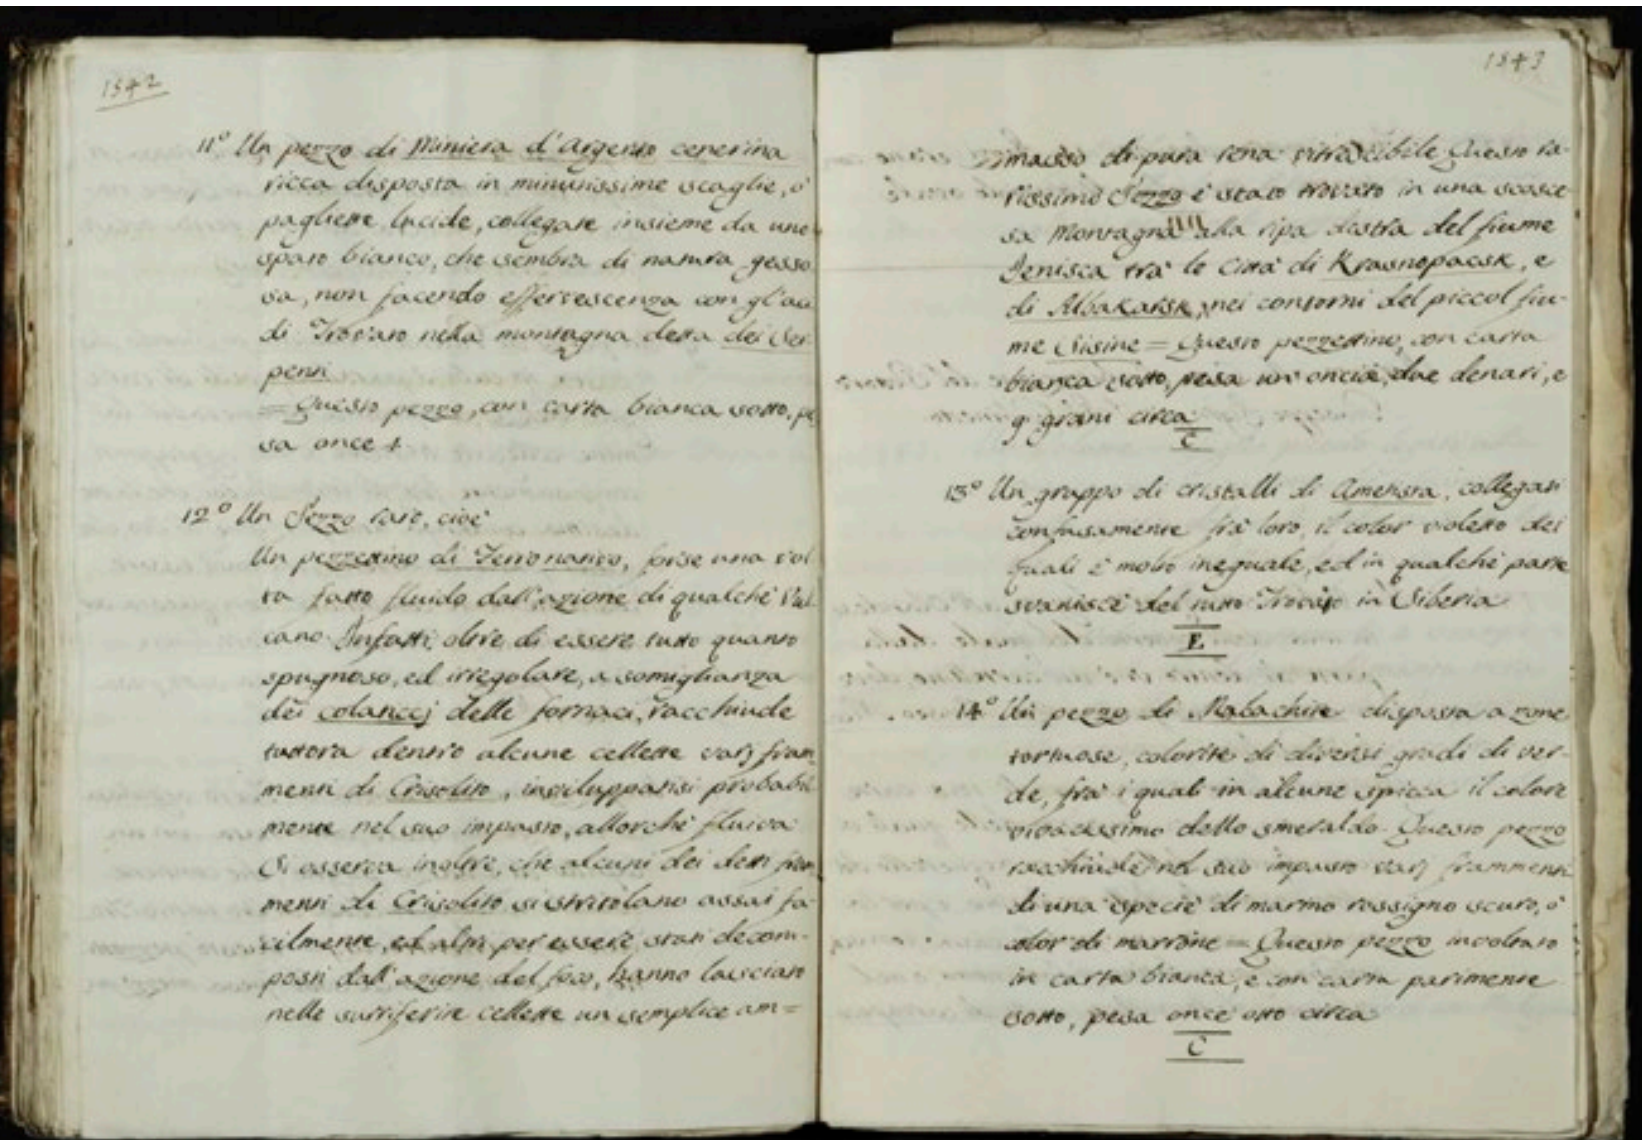 1542
11° Un pezzo di Miniera d'Argento cenerina
ricca disposta in minutissime scaglie, o'
pagliette lucide, collegate insieme da uno
spato bianco, che sembra di natura gesso
sa, non facendo effervescenza con gl'aci
di Trovato nella montagna detta dei Ser
penti
= Questo pezzo, con carta bianca sotto, pe
sa once 4
12° Un Pezzo raro, cioè
Un pezzettino di Ferro nativo, forse una vol
ta fatto fluido dall'azione di qualche Vul
cano Infatti, oltre di essere tutto quanto
spugnoso, ed irregolare, a somiglianza
dei colaticcj delle fornaci, racchiude
tuttora dentro alcune cellette varj fram
menti di Crisolito, inviluppatisi probabil
mente nel suo impasto, allorchè fluiva
Si osserva inoltre, che alcuni dei detti fram
menti di Crisolito si stritolano assai fa
cilmente, ed altri per essere stati decom-
posti dall'azione del foco, hanno lasciato
nelle surriferite cellette un semplice am=
1543
masso di pura rena vitrescibile Questo ra-
rissimo Pezzo è stato trovato in una scosce
sa Montagna alla ripa destra del fiume
Jenisca trà le Città di Krasnopacsk, e
di Abakatsk, nei contorni del piccol fiu-
me Sisine = Questo pezzettino, con carta
bianca sotto, pesa un'oncia, due denari, e
9 grani circa
C
13° Un gruppo di cristalli di Ametista, collegati
confusamente frà loro, il color violetto dei
quali è molto ineguale, ed in qualche parte
svanisce del tutto Trovato in Siberia
E
14° Un pezzo di Malachite disposta a zone
tortuose, colorite di diversi gradi di ver-
de, frà i quali in alcune spicca il colore
vivacissimo dello smeraldo Questo pezzo
racchiude nel suo impasto varj frammenti
di una specie di marmo rossigno scuro, o'
color di marrone = Questo pezzo involtato
in carta bianca, e con carta parimente
sotto, pesa once otto circa
C